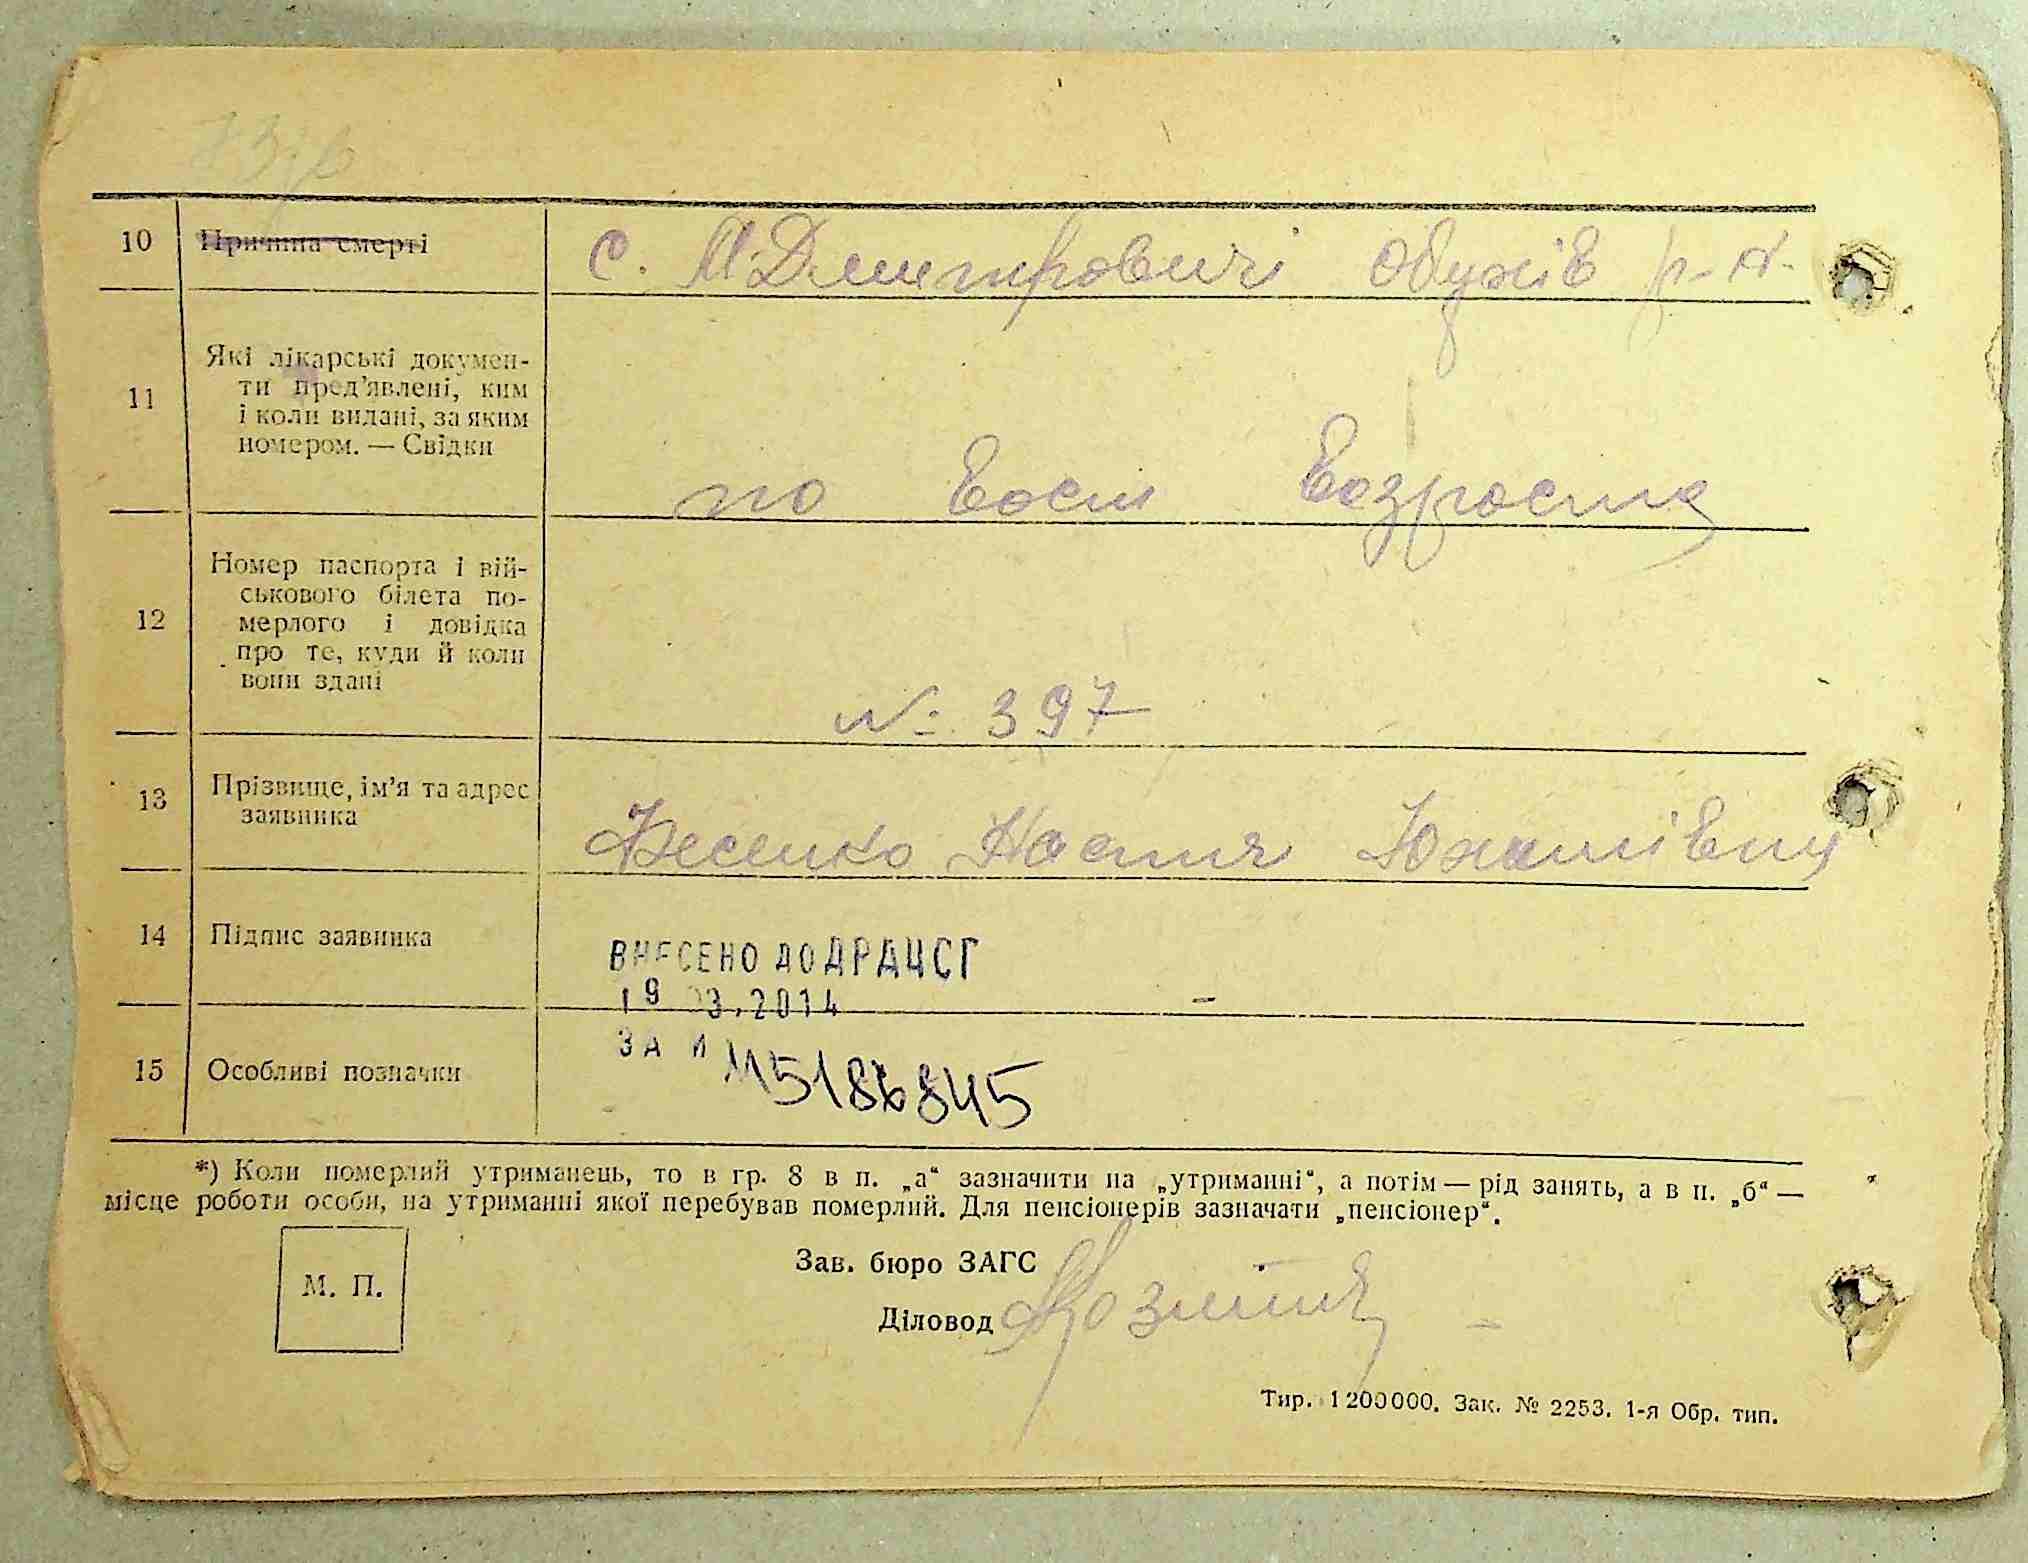 10 Причина смерті с. М. Дмитровичі Обухів р-н.
11 Які лікарські докумен-
ти пред’явлені, ким
і коли видані, за яким
номером. — Свідки
по воєм возроста
12 Номер паспорта і вій-
ськового білета по-
мерлого і довідка
про те, куди й коли
вони здані
№ 397
13 Прізвище, ім’я та адрес
заявника
Настія
14 Підпис заявника
ВНЕСЕНО ДО ДРАЦСГ
19 03.2014
ЗА №
115186845
15 Особливі позначки
*) Коли померлий утриманець, то в гр. 8 в п. „а“ зазначити на „утриманні“, а потім — рід занять, а в п. „б“ —
місце роботи особи, на утриманні якої перебував померлий. Для пенсіонерів зазначати „пенсіонер“.
М. П.
Зав. бюро ЗАГС
Діловод
Тир. 1200000. Зак. № 2253. 1-я Обр. тип.